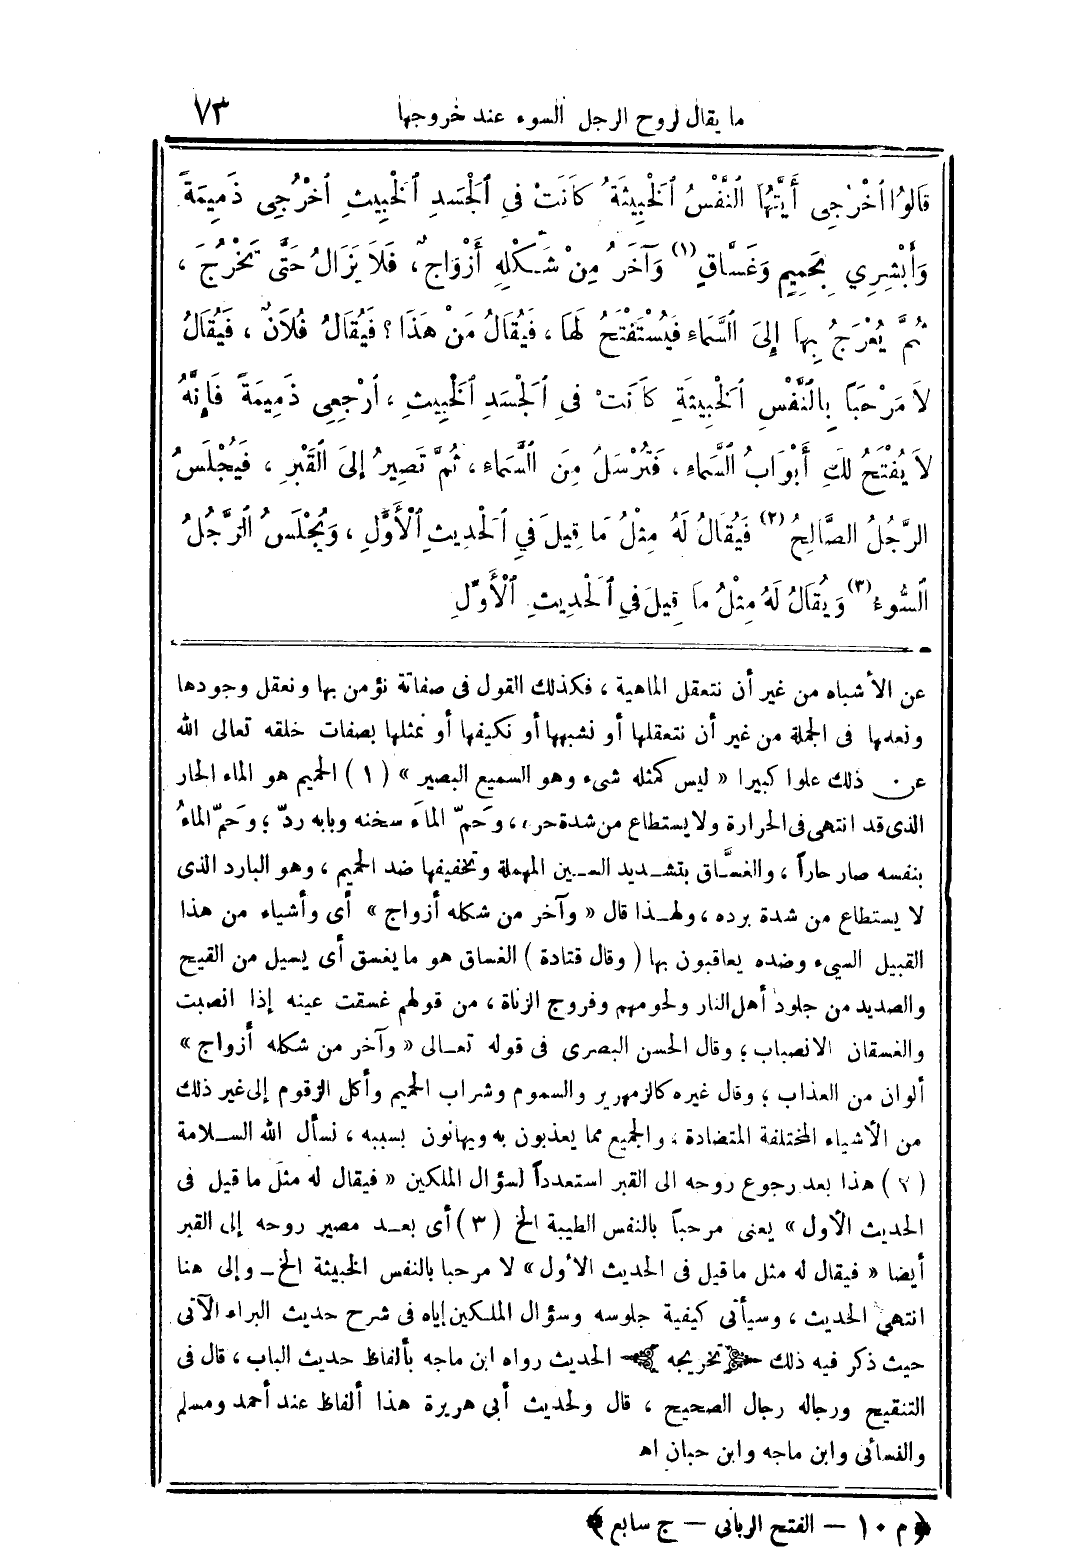 ما يقال لروح الرجل السوء عند خروجها ٧٣
قَالُوا اُخْرُجِى أَيَّتُهَا النَّفْسُ الْخَبِيثَةُ كَانَتْ فِى الْجَسَدِ الْخَبِيثِ اُخْرُجِى ذَمِيمَةً
وَأَبْشِرِي بِحَمِيمٍ وَغَسَّاقٍ (١) وَآخَرُ مِنْ شَكْلِهِ أَزْوَاجٌ، فَلاَ يَزَالُ حَتَّى تَخْرُجَ ،
ثُمَّ يُعْرَجُ بِهَا إِلَى السَّمَاءِ فَيُسْتَفْتَحُ لَهَا ، فَيُقَالُ مَنْ هَذَا ؟ فَيُقَالُ فُلاَنٌ ، فَيُقَالُ
لاَ مَرْحَبًا بِالنَّفْسِ الْخَبِيثَةِ كَانَتْ فِى الْجَسَدِ الْخَبِيثِ ، اُرْجِعِى ذَمِيمَةً فَإِنَّهُ
لاَ يُفْتَحُ لَكِ أَبْوَابُ السَّمَاءِ ، فَتُرْسَلُ مِنَ السَّمَاءِ ، ثُمَّ تَصِيرُ إِلَى الْقَبْرِ ، فَيُجْلَسُ
الرَّجُلُ الصَّالِحُ (٢) فَيُقَالُ لَهُ مِثْلُ مَا قِيلَ فِي الْحَدِيثِ الْأَوَّلِ ، وَيُجْلَسُ الرَّجُلُ
السُّوءُ (٣) وَيُقَالُ لَهُ مِثْلُ مَا قِيلَ فِي الْحَدِيثِ الْأَوَّلِ
عن الأشباه من غير أن نتعقل الماهية ، فكذلك القول فى صفاته نؤمن بها ونعقل وجودها
ونعلمها فى الجملة من غير أن نتعقلها أو نشبهها أو نكيفها أو نمثلها بصفات خلقه تعالى الله
عن ذلك علوا كبيرا « ليس كمثله شىء وهو السميع البصير » ( ١ ) الحميم هو الماء الحار
الذى قد انتهى فى الحرارة ولا يستطاع من شدة حره ، وَحَمّ الماءَ سخنه وبابه ردّ ؛ وحَمّ الماءُ
بنفسه صار حاراً ، والغسَّاق بتشديد السين المهملة وتخفيفها ضد الحميم ، وهو البارد الذى
لا يستطاع من شدة برده ، ولهذا قال « وآخر من شكله أزواج » أى وأشياء من هذا
القبيل السيء وضده يعاقبون بها ( وقال قتادة ) الغساق هو ما يغسق أى يسيل من القيح
والصديد من جلود أهل النار ولحومهم وفروج الزناة ، من قولهم غسقت عينه إذا انصبت
والغسقان الانصباب ؛ وقال الحسن البصرى فى قوله تعالى « وآخر من شكله أزواج »
ألوان من العذاب ؛ وقال غيره كالزمهرير والسموم وشراب الحميم وأكل الزقوم إلى غير ذلك
من الأشياء المختلفة المتضادة ، والجميع مما يعذبون به ويهانون بسببه ، نسأل الله السلامة
( ٢ ) هذا بعد رجوع روحه الى القبر استعدداً لسؤال الملكين « فيقال له مثل ما قيل فى
الحديث الأول » يعنى مرحباً بالنفس الطيبة الخ ( ٣ ) أى بعد مصير روحه إلى القبر
أيضا « فيقال له مثل ما قيل فى الحديث الأول » لا مرحبا بالنفس الخبيثة الخ ــ وإلى هنا
انتهى الحديث ، وسيأتى كيفية جلوسه وسؤال الملكين إياه فى شرح حديث البراء الآتى
حيث ذكر فيه ذلك ﴿ تخريجه ﴾ الحديث رواه ابن ماجه بألفاظ حديث الباب ، قال فى
التنقيح ورجاله رجال الصحيح ، قال ولحديث أبى هريرة هذا ألفاظ عند أحمد ومسلم
والنسائى وابن ماجه وابن حبان اه
﴿ م ١٠ – الفتح الربانى – ج سابع ﴾